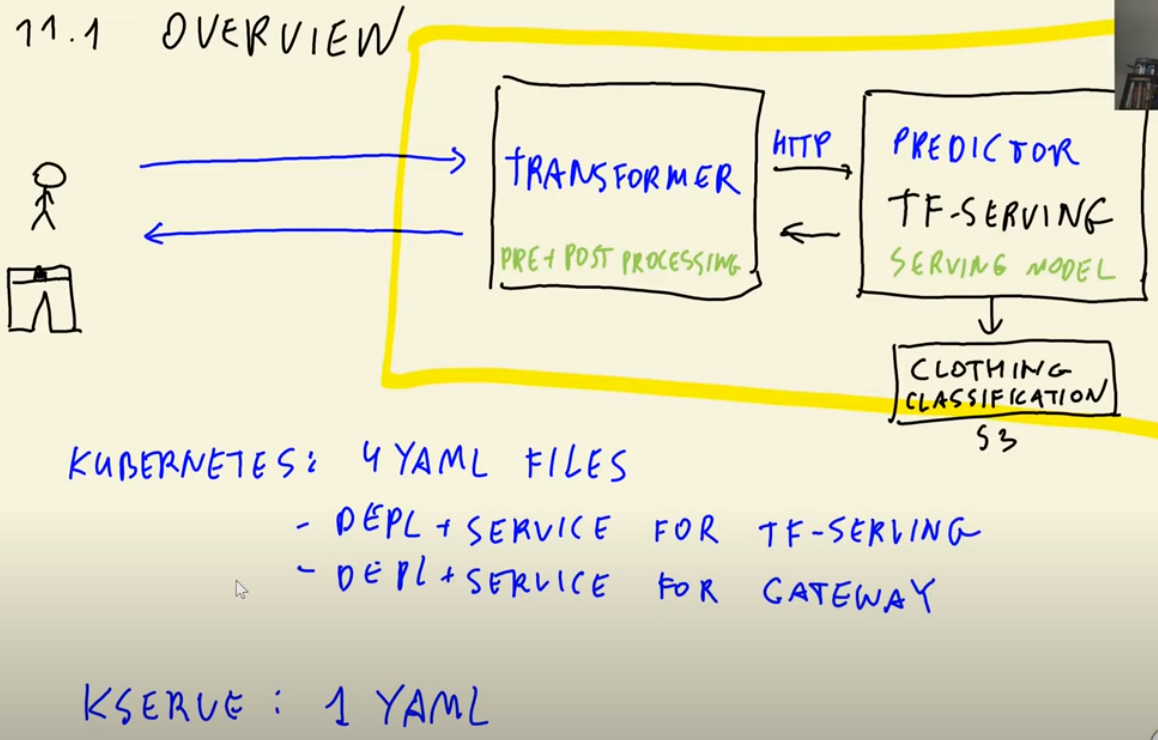 11.1 OVERVIEW
TRANSFORMER
PRE + POST PROCESSING
HTTP
PREDICTOR
TF-SERVING
SERVING MODEL
CLOTHING
CLASSIFICATION
S3
KUBERNETES: 4 YAML FILES
- DEPL + SERVICE FOR TF-SERVING
- DEPL + SERVICE FOR GATEWAY
KSERVE: 1 YAML